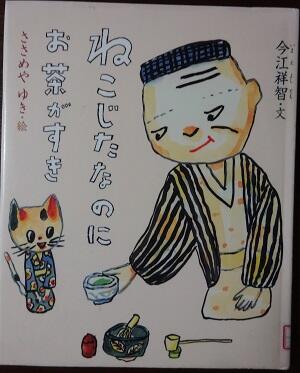 今江祥智・文
ねこじたなのに
お茶がすき
ささめやゆき・絵